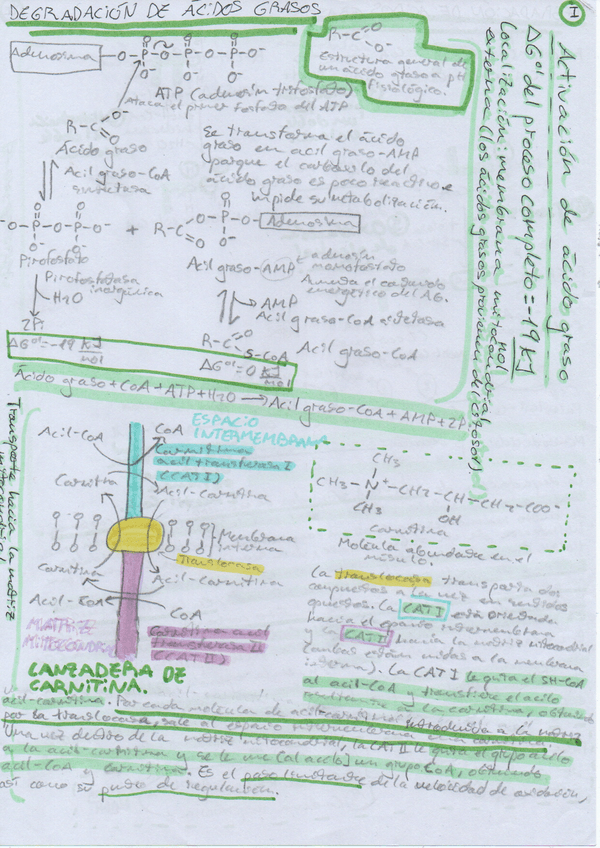 DEGRADACIÓN DE ÁCIDOS GRASOS
1
Activación de ácido graso
ΔG°' del proceso completo = -19 KJ/mol
Localización: membrana mitocondrial
externa (los ácidos grasos provienen del citosol)
R-C
O
O⁻
Estructura general de
un ácido graso a pH
fisiológico.
Adenosina -O-P-O-P-O-P-O⁻
ATP (adenosín trifosfato)
Ataca el primer fosfato del ATP
R-C
O
O⁻
Ácido graso
Acil graso-CoA
sintetasa
Se transforma el ácido
graso en acil graso-AMP
porque el carboxilo del
ácido graso es poco reactivo e
impide su metabolización.
⁻O-P-O-P-O⁻ +
Pirofosfato
R-C
O
O-P-O- Adenosina
Acil graso-AMP
adenosín
monofosfato
Aumenta el contenido
energético del AG.
Pirofosfatasa
inorgánica
H₂O
2Pi
ΔG°'=-19 KJ/mol
AMP
Acil graso-CoA sintetasa
R-C
O
S-CoA
Acil graso-CoA
ΔG°'=0 KJ/mol
Ácido graso+CoA+ATP+H₂O → Acil graso-CoA+AMP+2Pi
Transporte hacia la matriz
mitocondrial
ESPACIO
INTERMEMBRANA
Acil-CoA
CoA
Carnitina
acil transferasa I
(CATI)
Carnitina
Acil-Carnitina
Membrana
interna
Translocasa
Carnitina
Acil-Carnitina
Acil-CoA
CoA
MATRIZ
MITOCONDRIAL
Carnitina acil
transferasa II
(CATII)
LANZADERA DE
CARNITINA.
CH₃
CH₃-N⁺-CH₂-CH-CH₂-COO⁻
CH₃
OH
Carnitina
Molécula abundante en el
músculo.
La translocasa transporta dos
compuestos a la vez en sentidos
opuestos. La CATI está orientada
hacia el espacio intermembrana
y la CATII hacia la matriz mitocondrial
(ambas están unidas a la membrana
interna). La CATI le quita el SH-CoA
al acil-CoA y transfiere el acilo
a la carnitina, obteniendo
acil-carnitina. Por cada molécula de acil-carnitina introducida a la matriz
por la translocasa, sale al espacio intermembrana una carnitina.
Una vez dentro de la matriz mitocondrial, la CATII le quita el grupo acilo
a la acil-carnitina y se le une (al acilo) un grupo CoA, obteniendo
acil-CoA y carnitina. Es el paso limitante de la velocidad de oxidación,
así como su punto de regulación.